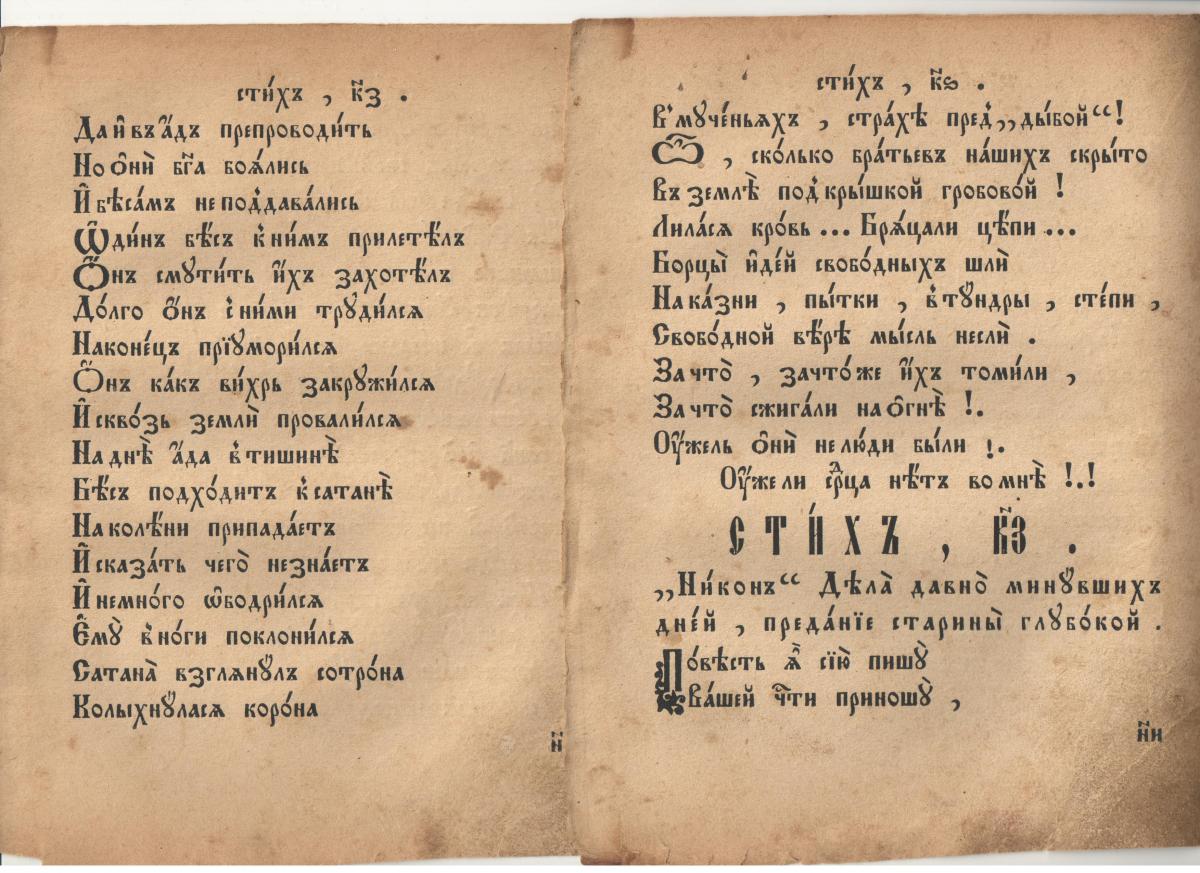 сти́хъ , к҃з .
Да и҆ въ а҆́дъ препроводи́ть
Но ѻ҆нѝ бг҃а боѧ́лись
И҆ бѣса́мъ не подꙣава́лись
Ѡ҆ди́нъ бѣ́съ к̾ ни́мъ прилетѣ́лъ
Ѻ҆́нъ смути́ть и҆́хъ захотѣ́лъ
До́лго ѻ҆́нъ с̾ ни́ми труди́лсѧ
Наконе́цъ прїумори́лсѧ
Ѻ҆́нъ ка́къ ви́хрь закружи́лсѧ
И҆ сквоз́ь землѝ провали́лсѧ
На днѣ̀ а҆́да в̾ тишинѣ̀
Бѣ́съ подхо́дитъ к̾ сатанѣ̀
На колѣ́ни припада́етъ
И҆ сказа́ть чего̀ незна́етъ
И҆ немно́го ѡ҆бодри́лсѧ
Е҆мꙋ̀ в̾ но́ги поклони́лсѧ
Сатана̀ взглѧнꙋ́лъ сотро́на
Колыхнꙋ́ласѧ коро́на
н҃
сти́хъ , к҃ѕ .
В̾ мꙋче́ньѧхъ , стра́хѣ пред̾ „ды́бой“ !
Ѽ , ско́лько бра́тьевъ на́шихъ скры́то
Въ землѣ̀ под̾ кры́шкой гробово́й !
Лила́сѧ кро́вь ... Брѧца́ли цѣ́пи ...
Борцы̀ и҆де́й свобо́дныхъ шлѝ
На ка́зни , пы́тки , в̾ тꙋ́ндры , сте́пи ,
Свобо́дной вѣ́рѣ мы́сль неслѝ .
За что̀ , зачто́ же и҆́хъ томи́ли ,
За что̀ сжига́ли на ѻ҆гнѣ̀ !.
Оу҆́жель ѻ҆нѝ не лю́ди бы́ли !.
Оу҆́жели срⷣца нѣ́тъ во мнѣ̀ !.!
СТИ́ХЪ , к҃з .
„Ни́конъ“ Дѣла̀ давно̀ минꙋ́вшихъ
дне́й , преда́нїе старины̀ глꙋбо́кой .
По́вѣсть ѧ҆̀ сїю̀ пишꙋ̀
Ва́шей чⷭ҇ти приношꙋ̀ ,
н҃и